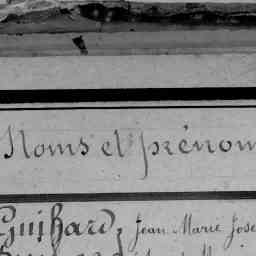 Noms et prénom
Guihard, Jean Marie Jose